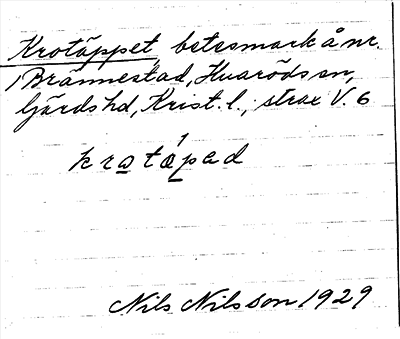 Krotäppet, betesmark å nr.
1 Brännestad, Hvaröds sn,
Gärds hd, Krist. l., strax V. 6
krotäpad
Nils Nilsson 1929